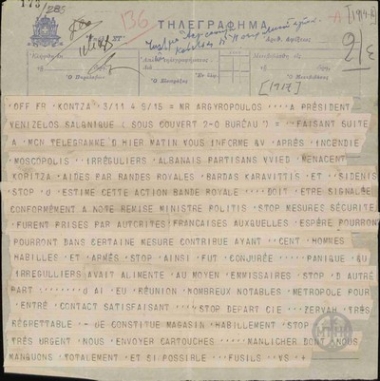 ΤΗΛΕΓΡΑΦΗΜΑ
OFF FR KONTZA 3/11 4 9/15 = MR ARGYROPOULOS A PRÉSIDENT
VENIZELOS SALONIQUE ( SOUS COUVERT 2-G BUREAU ) = FAISANT SUITE
A MON TELEGRAMME D HIER MATIN VOUS INFORME QV APRÈS INCENDIE
MOSCOPOLIS IRRÉSULIERS ALBANAIS PARTISANS VVIED MENACENT
KORITZA AIDES PAR BANDES ROYALES BARDAS KARAVITTIS ET SIDENIS
STOP J ESTIME CETTE ACTION BANDE ROYALE DOIT ETRE SIGNALÉE
CONFORMÉMENT A NOTE REMISE MINISTRE POLITIS STOP MESURES SÉCURITÉ
FURENT PRISES PAR AUTORITES FRANÇAISES AUXQUELLES ESPÈRE POURRONT
POURRONT DANS CERTAINE MESURE CONTRIBUE AYANT CENT HOMMES
HABILLES ET ARMÉS STOP AINSI FUT CONJURÉE PANIQUE QU
IRREGULLIERS AVAIT ALIMENTE AU MOYEN EMISSAIRES STOP D AUTRE
PART J AI EU RÉUNION NOMBREUX NOTABLES METROPOLE POUR
ENTRÉ CONTACT SATISFAISANT STOP DEPART CIE ZERVAH TRÈS
RÉGRETTABLE JE CONSTITUE MAGASIN HABILLEMENT STOP
TRÈS URGENT NOUS ENVOYER CARTOUCHES MANLICHER DONT ANOUS
MANQUONS TOTALEMENT ET SI POSSIBLE FUSILS VS +